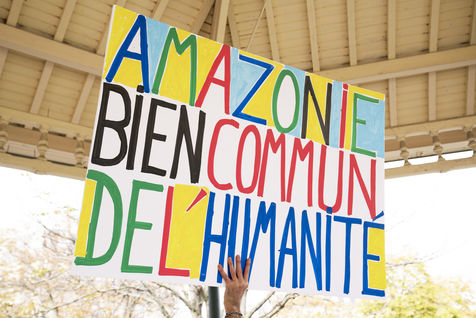 AMAZONIE
BIEN COMMUN
DE L'HUMANITÉ